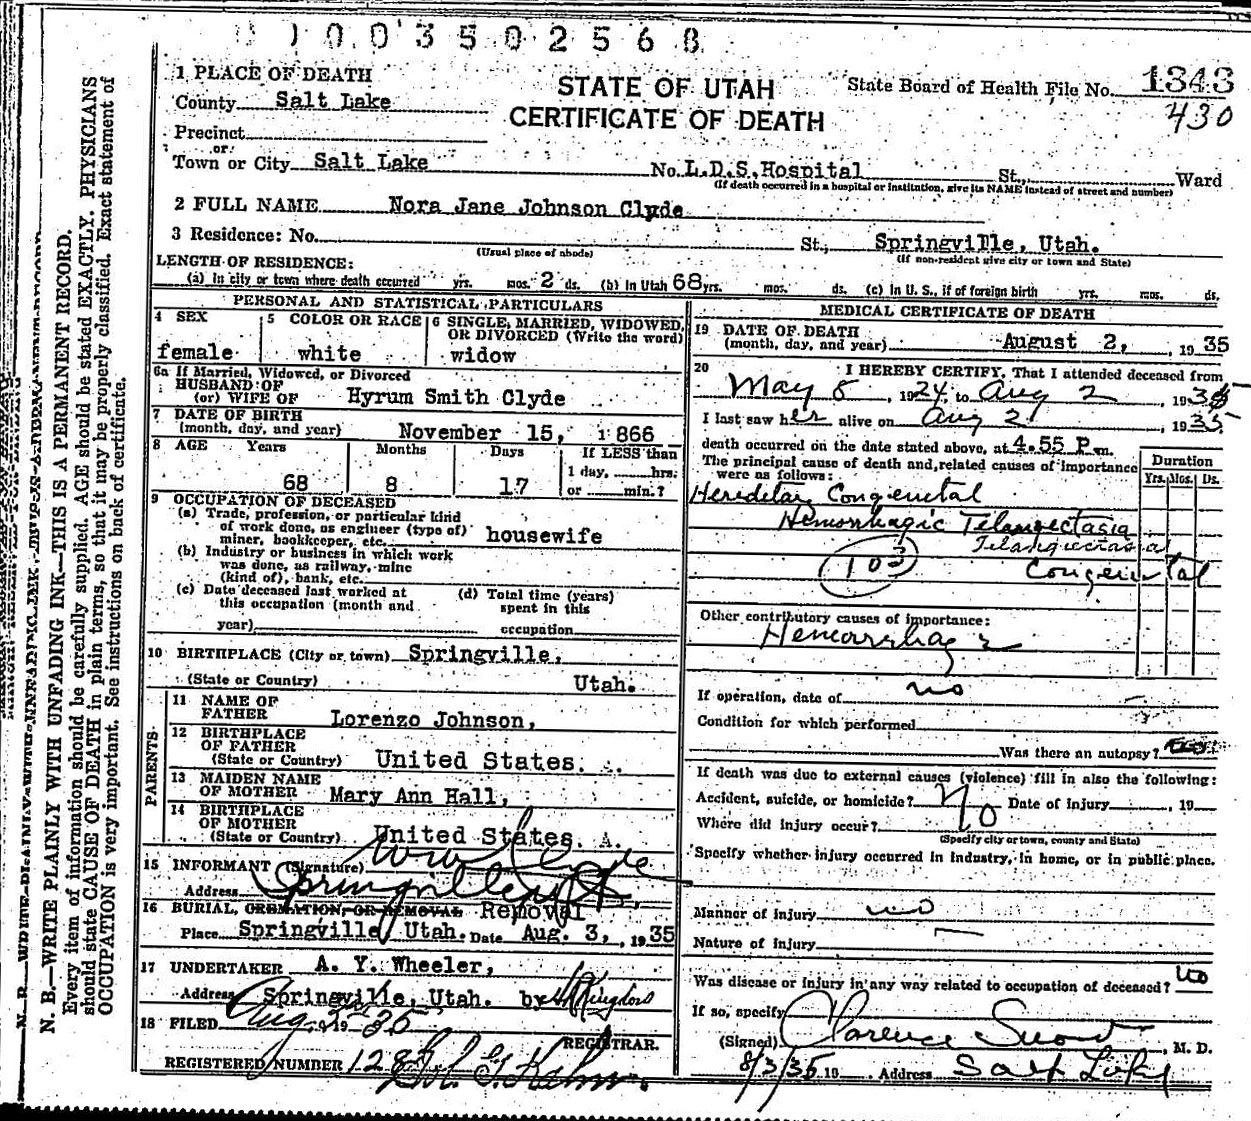 0 1 0 0 3 5 0 2 5 6 8
1 PLACE OF DEATH
STATE OF UTAH
CERTIFICATE OF DEATH
State Board of Health File No. 1343
430
County Salt Lake
Precinct
or
Town or City Salt Lake No. L.D.S. Hospital St., Ward
(If death occurred in a hospital or institution, give its NAME instead of street and number)
2 FULL NAME Nora Jane Johnson Clyde
3 Residence: No. St., Springville, Utah.
(Usual place of abode) (If non-resident give city or town and State)
LENGTH OF RESIDENCE:
(a) In city or town where death occurred yrs. mos. 2 ds. (b) In Utah 68 yrs. mos. ds. (c) In U. S., if of foreign birth yrs. mos. ds.
PERSONAL AND STATISTICAL PARTICULARS
4 SEX
female
5 COLOR OR RACE
white
6 SINGLE, MARRIED, WIDOWED, OR DIVORCED (Write the word)
widow
6a If Married, Widowed, or Divorced
HUSBAND OF
(or) WIFE OF Hyrum Smith Clyde
7 DATE OF BIRTH
(month, day, and year) November 15, 1866
8 AGE Years Months Days If LESS than
1 day, hrs.
68 8 17 or min.?
9 OCCUPATION OF DECEASED
(a) Trade, profession, or particular kind
of work done, as engineer (type of)
miner, bookkeeper, etc. housewife
(b) Industry or business in which work
was done, as railway, mine
(kind of), bank, etc.
(c) Date deceased last worked at
this occupation (month and
year)
(d) Total time (years)
spent in this
occupation
10 BIRTHPLACE (City or town) Springville,
(State or Country) Utah.
PARENTS
11 NAME OF
FATHER Lorenzo Johnson,
12 BIRTHPLACE
OF FATHER
(State or Country) United States. A.
13 MAIDEN NAME
OF MOTHER Mary Ann Hall,
14 BIRTHPLACE
OF MOTHER
(State or Country) United States. A.
15 INFORMANT (Signature) Wm Clyde
Address Springville Ut.
16 BURIAL, CREMATION, OR REMOVAL Removal
Place Springville, Utah. Date Aug. 3, 1935
17 UNDERTAKER A. Y. Wheeler,
Address Springville, Utah. by
18 FILED Aug 1935
REGISTRAR.
REGISTERED NUMBER 128
MEDICAL CERTIFICATE OF DEATH
19 DATE OF DEATH
(month, day, and year) August 2, 1935
20 I HEREBY CERTIFY, That I attended deceased from
May 8, 1924, to Aug 2, 1935
I last saw her alive on Aug 2, 1935
death occurred on the date stated above, at 4.55 P m.
The principal cause of death and related causes of importance
were as follows:
Duration
Yrs. Mos. Ds.
Hereditary Congenital
Hemorrhagic Telangectasia
Telangiectasia
103
Congenital
Other contributory causes of importance:
Hemorrhage
If operation, date of no
Condition for which performed
Was there an autopsy?
If death was due to external causes (violence) fill in also the following:
Accident, suicide, or homicide? No Date of injury , 19
Where did injury occur?
(Specify city or town, county and State)
Specify whether injury occurred in industry, in home, or in public place.
Manner of injury no
Nature of injury
Was disease or injury in any way related to occupation of deceased? no
If so, specify
(Signed) Clarence Snow, M. D.
8/3/35 19 Address Salt Lake
N. B.—WRITE PLAINLY WITH UNFADING INK—THIS IS A PERMANENT RECORD.
Every item of information should be carefully supplied. AGE should be stated EXACTLY. PHYSICIANS
should state CAUSE OF DEATH in plain terms, so that it may be properly classified. Exact statement of
OCCUPATION is very important. See instructions on back of certificate.